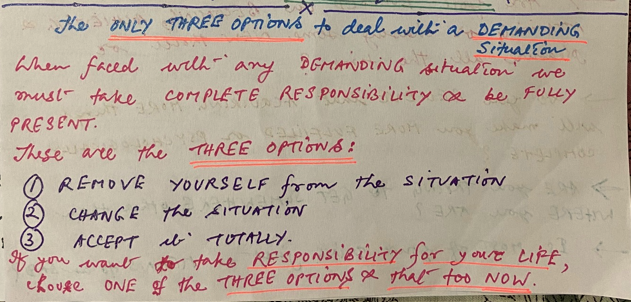 The ONLY THREE OPTIONS to deal with a DEMANDING
Situation
When faced with any DEMANDING situation we
must take COMPLETE RESPONSIBILITY & be FULLY
PRESENT.
These are the THREE OPTIONS:
① REMOVE YOURSELF from the SITUATION
② CHANGE the SITUATION
③ ACCEPT it TOTALLY.
If you want to take RESPONSIBILITY for your LIFE,
choose ONE of the THREE OPTIONS & that too NOW.